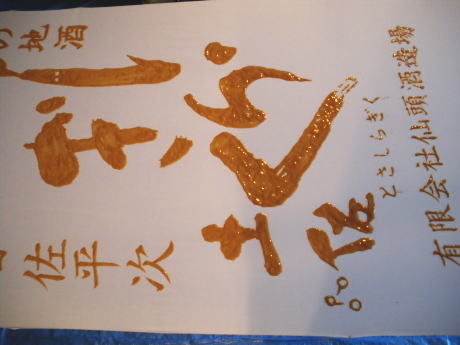 の地酒
佐平次
土佐
しらぎく
とさしらぎく
有限会社仙頭酒造場